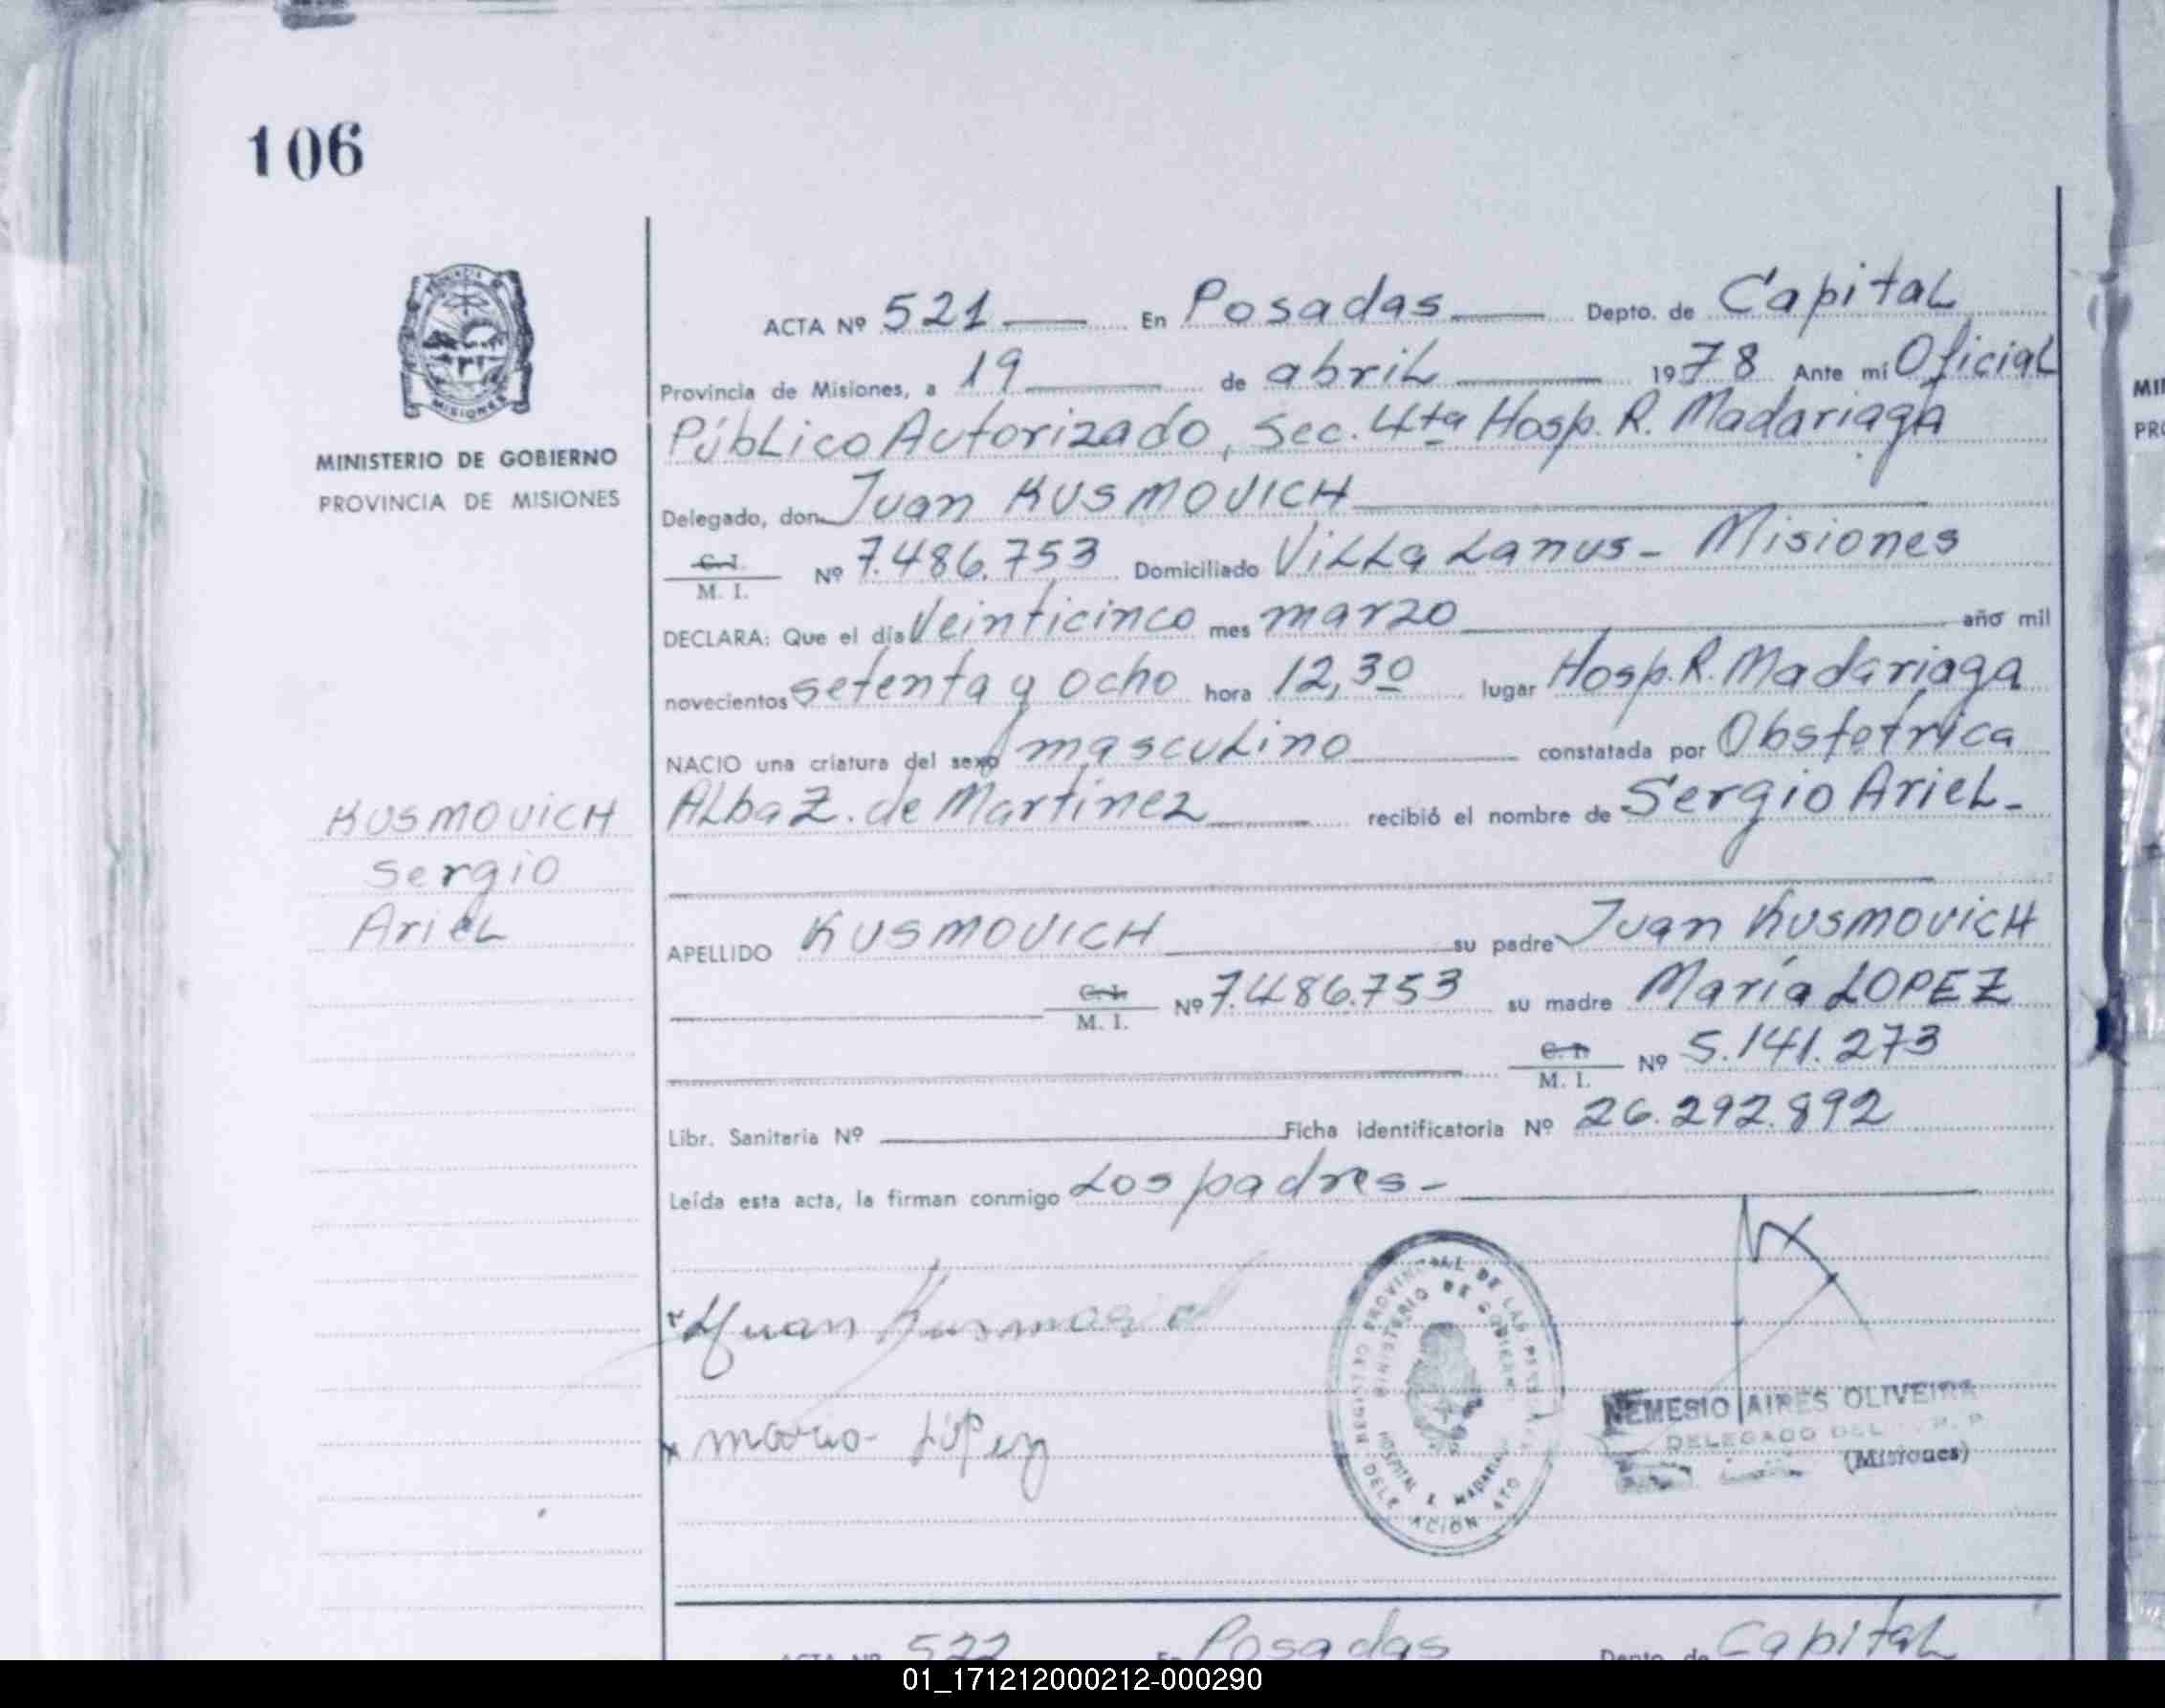 106
ACTA Nº 521 En Posadas Depto. de Capital
Provincia de Misiones, a 19 de abril 1978 Ante mí Oficial
Público Autorizado, Sec. 4ta Hosp. R. Madariaga
MINISTERIO DE GOBIERNO
PROVINCIA DE MISIONES
Delegado, don Juan KUSMOVICH
C. I.
M. I. Nº 7.486.753 Domiciliado Villa Lanus - Misiones
DECLARA: Que el día Veinticinco mes marzo año mil
novecientos setenta y ocho hora 12,30 lugar Hosp. R. Madariaga
NACIO una criatura del sexo masculino constatada por Obstetrica
Alba Z. de Martinez recibió el nombre de Sergio Ariel-
KUSMOVICH
Sergio
Ariel
APELLIDO KUSMOVICH su padre Juan KUSMOVICH
C. I.
M. I. Nº 7.486.753 su madre María LOPEZ
C. I.
M. I. Nº 5.141.273
Libr. Sanitaria Nº Ficha identificatoria Nº 26.292.892
Leída esta acta, la firman conmigo Los padres-
Juan
López
MINISTERIO DE GOBIERNO
HOSPITAL R. MADARIAGA
DELEGACION 4TO
NEMESIO AIRES OLIVEIRA
DELEGADO DEL
(Misiones)
MISIONES
ACTA Nº 522 En Posadas Depto. de Capital
MI
PR
01_171212000212-000290